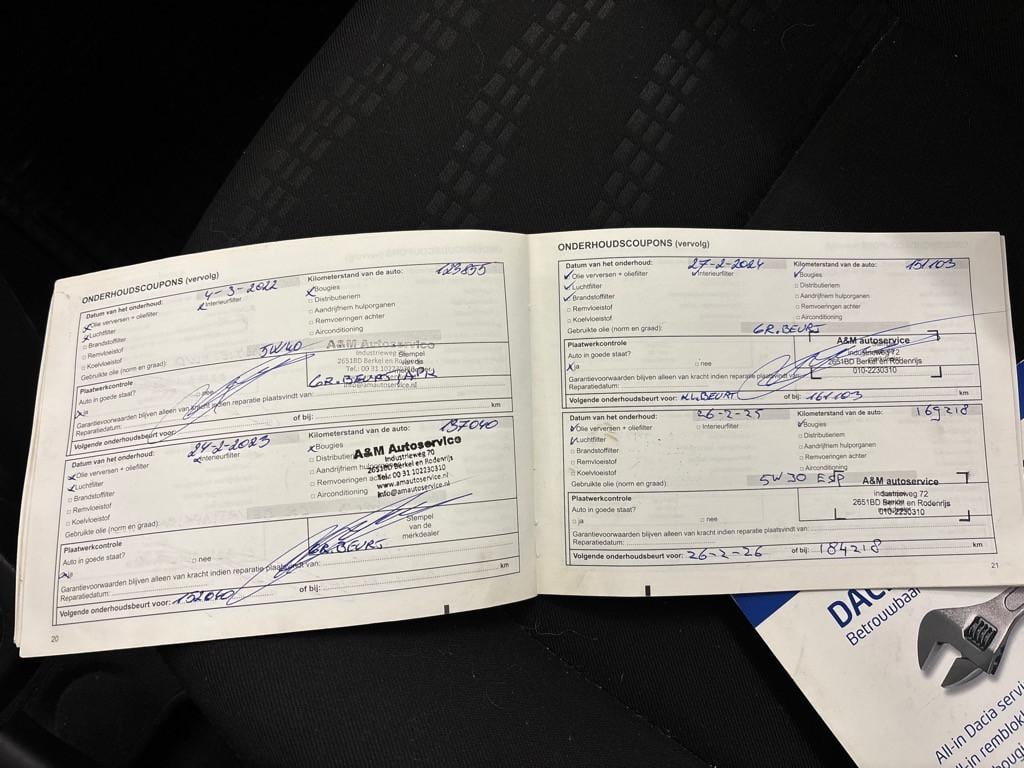 ONDERHOUDSCOUPONS (vervolg)
Datum van het onderhoud: 4-3-2022
Kilometerstand van de auto: 123855
x Olie verversen + oliefilter
x Interieurfilter
x Bougies
x Luchtfilter
□ Distributieriem
□ Brandstoffilter
□ Aandrijfriem hulporganen
□ Remvloeistof
□ Remvoeringen achter
□ Koelvloeistof
□ Airconditioning
Gebruikte olie (norm en graad): 5W40
Plaatwerkcontrole
Auto in goede staat?
x ja
□ nee
A&M Autoservice
Industrieweg
2651BD Berkel en Rodenrijs
info@amautoservice.nl
Stempel
van de
GR.BEURT APK
Garantievoorwaarden blijven alleen van kracht indien reparatie plaatsvindt van:
Reparatiedatum:
Volgende onderhoudsbeurt voor:
of bij:
km
Datum van het onderhoud: 24-2-2023
Kilometerstand van de auto: 137040
x Olie verversen + oliefilter
x Interieurfilter
x Bougies
x Luchtfilter
□ Distributieriem
□ Brandstoffilter
□ Aandrijfriem hulporganen
□ Remvloeistof
□ Remvoeringen achter
□ Koelvloeistof
□ Airconditioning
Gebruikte olie (norm en graad):
A&M Autoservice
Industrieweg 70
2651BD Berkel en Rodenrijs
Tel.: 00 31 102230310
www.amautoservice.nl
info@amautoservice.nl
Plaatwerkcontrole
Auto in goede staat?
x ja
□ nee
Stempel
van de
merkdealer
GR.BEURT
Garantievoorwaarden blijven alleen van kracht indien reparatie plaatsvindt van:
Reparatiedatum:
Volgende onderhoudsbeurt voor: 152040
of bij:
km
20
ONDERHOUDSCOUPONS (vervolg)
Datum van het onderhoud: 27-2-2024
Kilometerstand van de auto: 151103
✓ Olie verversen + oliefilter
✓ Interieurfilter
✓ Bougies
✓ Luchtfilter
□ Distributieriem
✓ Brandstoffilter
□ Aandrijfriem hulporganen
□ Remvloeistof
□ Remvoeringen achter
□ Koelvloeistof
□ Airconditioning
Gebruikte olie (norm en graad):
GR.BEURT
Plaatwerkcontrole
Auto in goede staat?
x ja
□ nee
A&M autoservice
Industrieweg 72
2651BD Berkel en Rodenrijs
010-2230310
Garantievoorwaarden blijven alleen van kracht indien reparatie plaatsvindt van:
Reparatiedatum:
Volgende onderhoudsbeurt voor: KL.BEURT
of bij: 161103
km
Datum van het onderhoud: 26-2-25
Kilometerstand van de auto: 169218
✓ Olie verversen + oliefilter
□ Interieurfilter
✓ Bougies
✓ Luchtfilter
□ Distributieriem
□ Brandstoffilter
□ Aandrijfriem hulporganen
□ Remvloeistof
□ Remvoeringen achter
□ Koelvloeistof
□ Airconditioning
Gebruikte olie (norm en graad): 5W30 ESP
Plaatwerkcontrole
Auto in goede staat?
□ ja
□ nee
A&M autoservice
Industrieweg 72
2651BD Berkel en Rodenrijs
010-2230310
Garantievoorwaarden blijven alleen van kracht indien reparatie plaatsvindt van:
Reparatiedatum:
Volgende onderhoudsbeurt voor: 26-2-26
of bij: 184218
km
21
DAC
Betrouwbaa
All-in Dacia servi
ll-in remblok
bougi